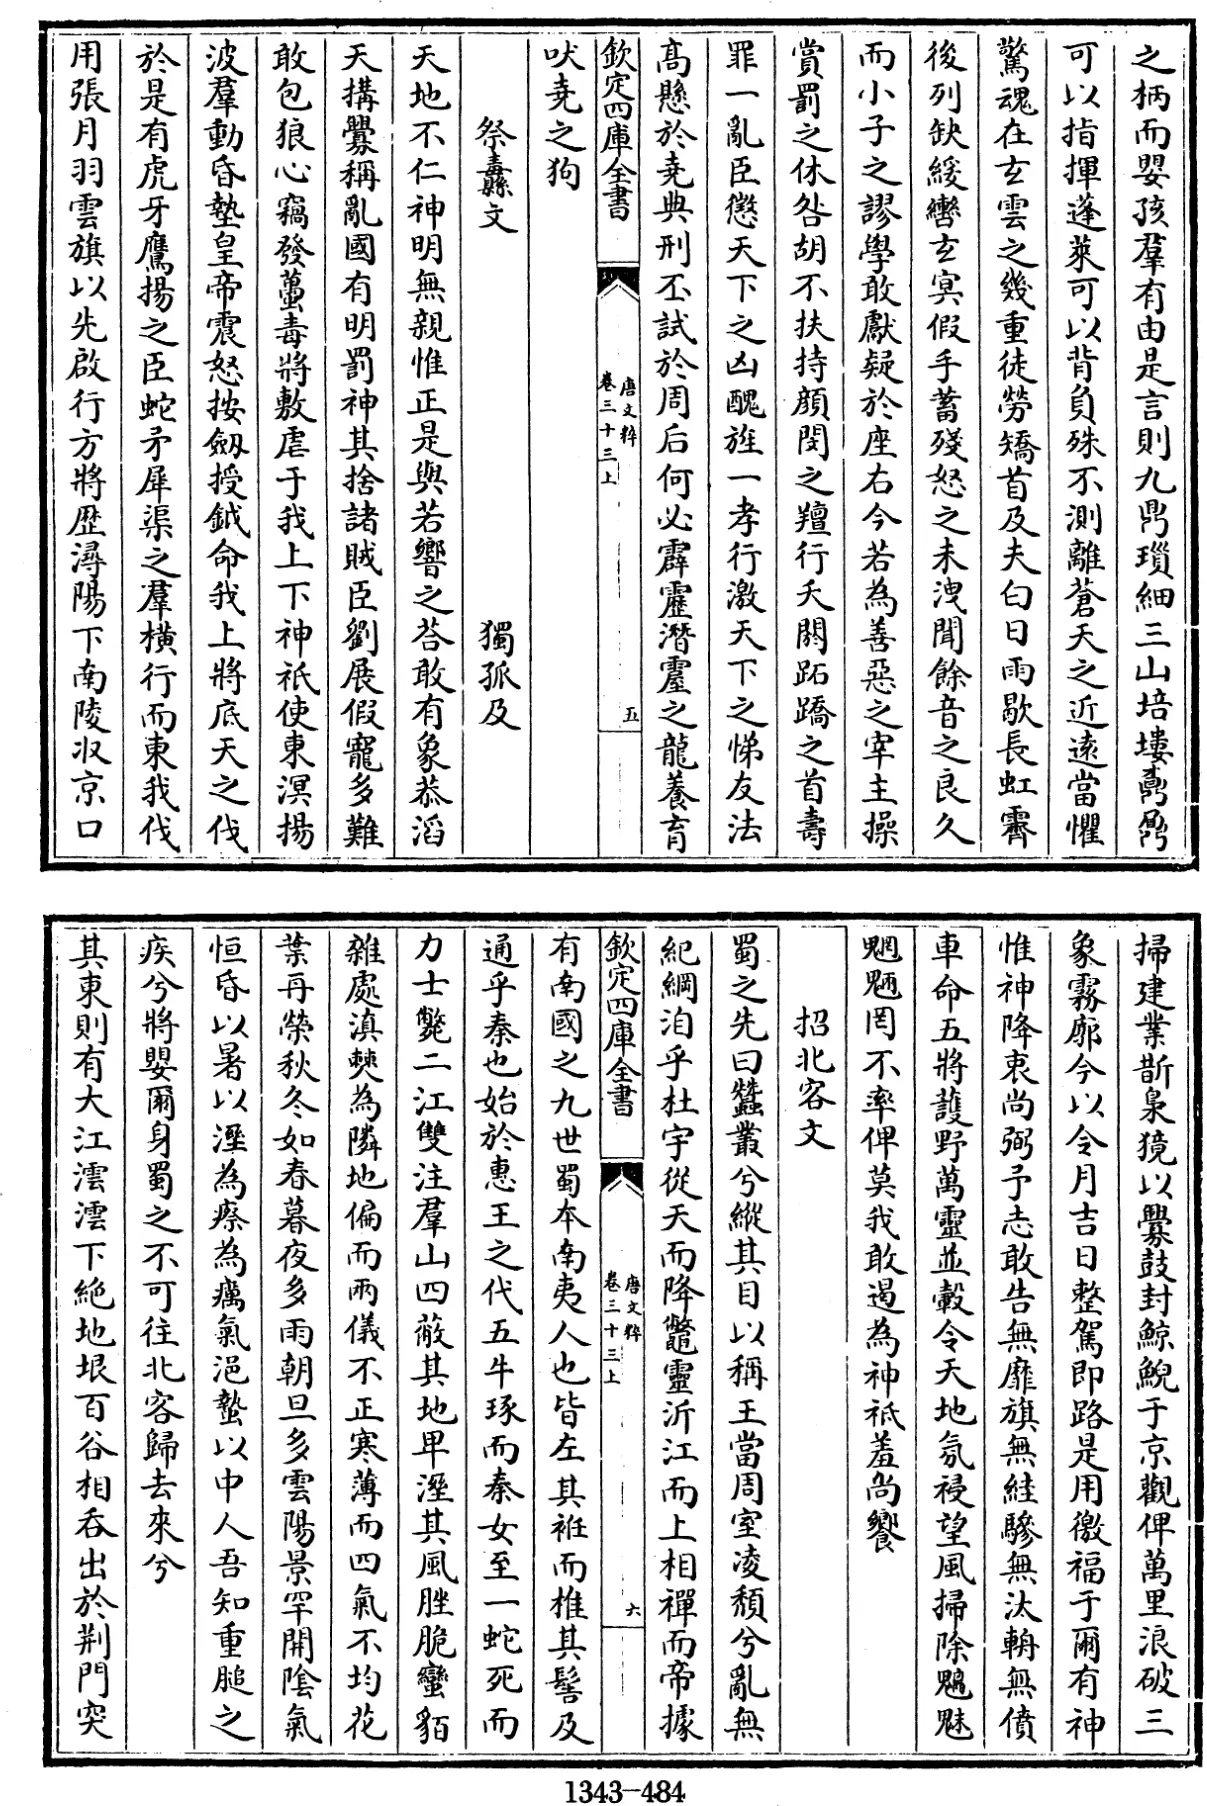 之柄而嬰孩羣有由是言則九鼎瑣細三山培塿鼒鼎
可以指揮蓬萊可以背負殊不測離蒼天之近遠當懼
驚魂在玄雲之幾重徒勞矯首及夫白日雨歇長虹霽
後列缺緩轡玄冥假手蓄殘怒之未洩聞餘音之良久
而小子之謬學敢獻疑於座右今若為善惡之宰主操
賞罰之休咎胡不扶持顔閔之羶行夭閼跖蹻之首壽
罪一亂臣懲天下之凶醜旌一孝行激天下之悌友法
髙懸於堯典刑丕試於周后何必霹靂潛靈之龍養育
欽定四庫全書
唐文粹
卷三十三上
五
吠堯之狗
祭纛文
獨孤及
天地不仁神明無親惟正是與若響之荅敢有象恭滔
天搆釁稱亂國有明罰神其捨諸賊臣劉展假寵多難
敢包狼心竊發蠆毒將敷虐于我上下神祇使東溟揚
波羣動昏墊皇帝震怒按劔授鉞命我上將底天之伐
於是有虎牙鷹揚之臣蛇矛犀渠之羣橫行而東我伐
用張月羽雲旗以先啟行方將歴潯陽下南陵収京口
掃建業斮梟獍以釁鼓封鯨鯢于京觀俾萬里浪破三
象霧廓今以令月吉日整駕即路是用徼福于爾有神
惟神降衷尚弼予志敢告無靡旗無絓驂無汰輈無僨
車命五將護野萬靈並轂令天地氛祲望風掃除魑魅
魍魎罔不率俾莫我敢遏為神祇羞尚饗
招北客文
蜀之先曰蠶叢兮縱其目以稱王當周室凌頽兮亂無
紀綱洎乎杜宇從天而降鼈靈泝江而上相禪而帝據
欽定四庫全書
唐文粹
卷三十三上
六
有南國之九世蜀本南夷人也皆左其衽而椎其髻及
通乎秦也始於惠王之代五牛琢而秦女至一蛇死而
力士斃二江雙注羣山四蔽其地卑溼其風脞脆蠻貊
雜處滇僰為隣地偏而兩儀不正寒薄而四氣不均花
葉再榮秋冬如春暮夜多雨朝旦多雲陽景罕開陰氣
恒昏以暑以溼為瘵為癘氣浥蟄以中人吾知重膇之
疾兮將嬰爾身蜀之不可往北客歸去來兮
其東則有大江澐澐下絶地垠百谷相吞出於荆門突
1343-484